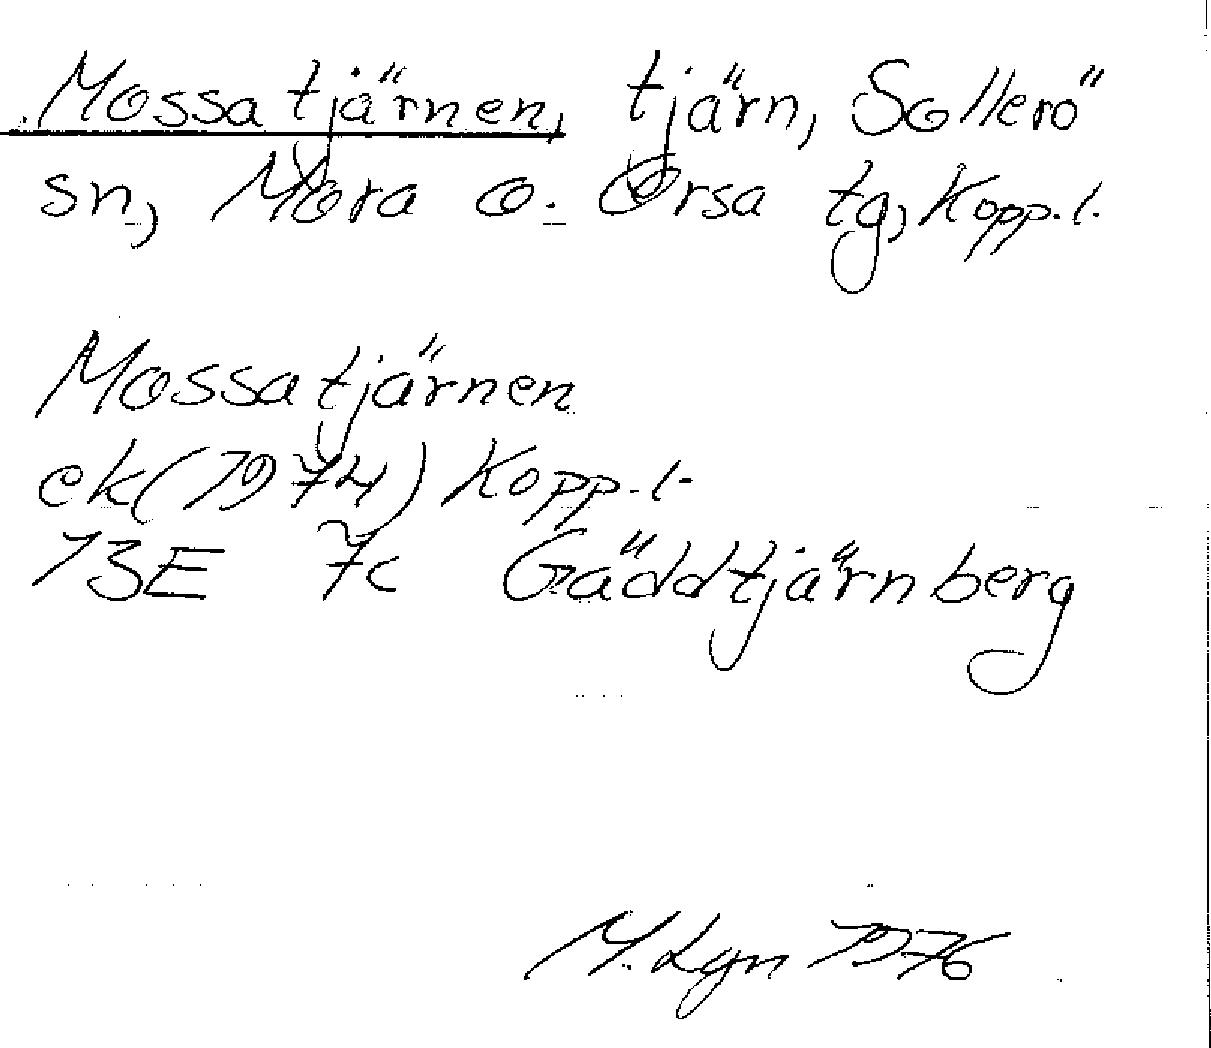 Mossatjärnen, tjärn, Sollerö
sn, Mora o. Orsa tg, Kopp. l.
Mossatjärnen
ek (1974) Kopp. l.
13E 7c Gäddtjärnberg
M. Lgn 1976